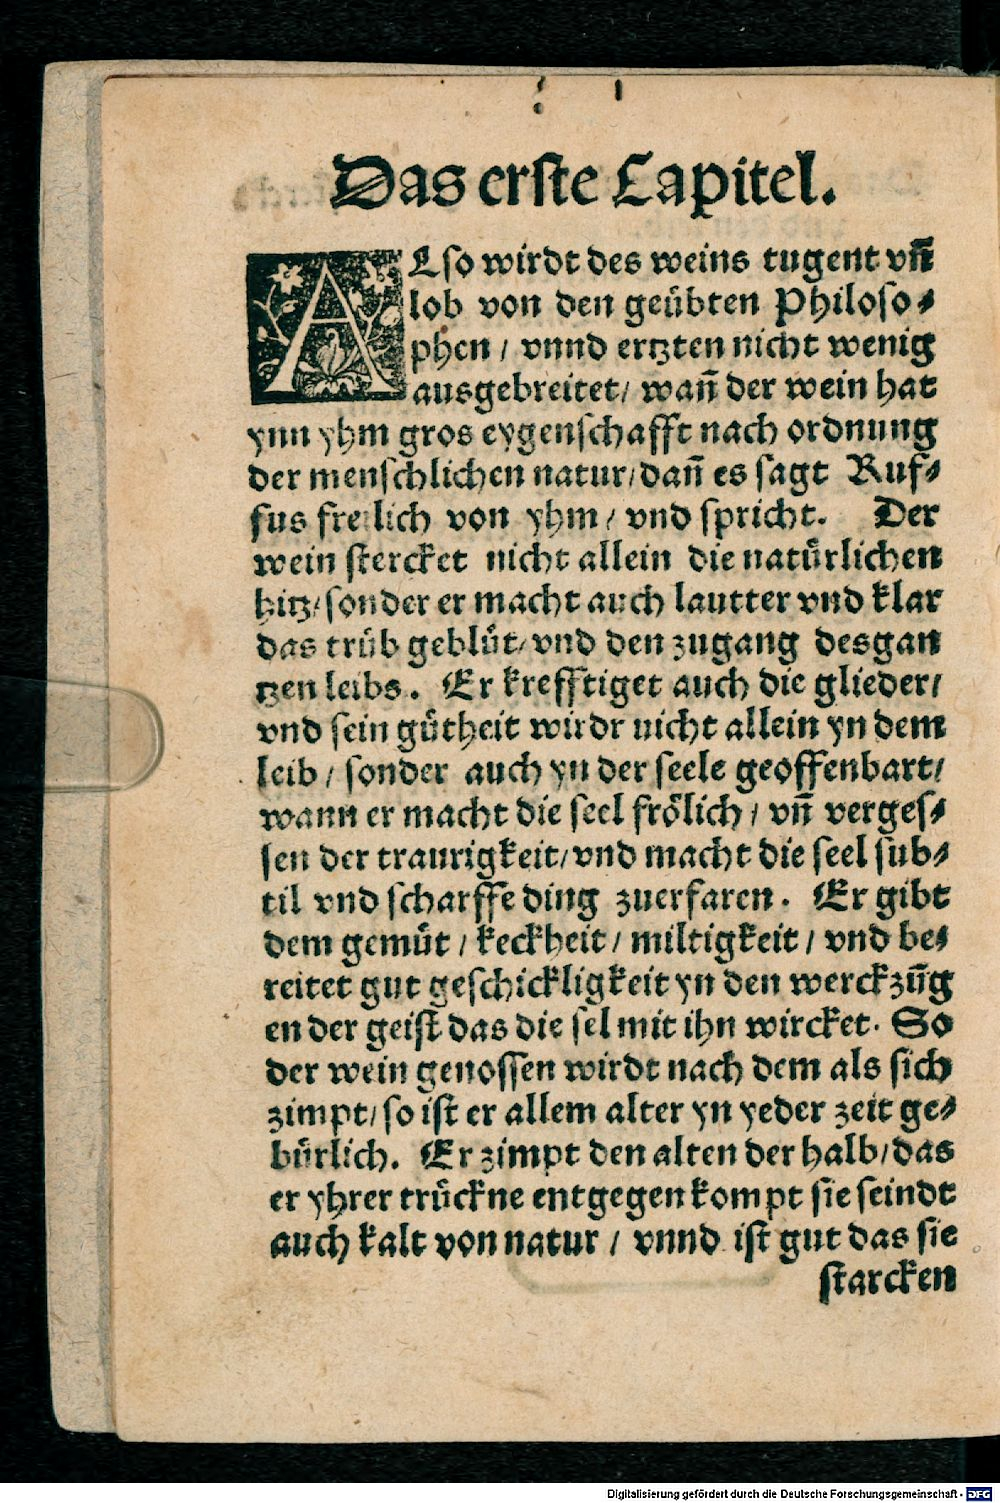 Das erste Capitel.
ALso wirdt des weins tugent vñ
lob von den geübten Philoso⸗
phen / vnnd ertzten nicht wenig
ausgebreitet / wañ der wein hat
ynn yhm gros eygenschafft nach ordnung
der menschlichen natur / dañ es sagt Ruf⸗
fus freilich von yhm / vnd spricht. Der
wein stercket nicht allein die natürlichen
hitz / sonder er macht auch lautter vnd klar
das trüb geblüt / vnd den zugang desgan
tzen leibs. Er krefftiget auch die glieder /
vnd sein gütheit wirdr nicht allein yn dem
leib / sonder auch yn der seele geoffenbart /
wann er macht die seel frölich / vñ verges⸗
sen der traurigkeit / vnd macht die seel sub⸗
til vnd scharffe ding zuerfaren. Er gibt
dem gemüt / keckheit / miltigkeit / vnd be⸗
reitet gut geschickligkeit yn den werckzũg
en der geist das die sel mit ihn wircket. So
der wein genossen wirdt nach dem als sich
zimpt / so ist er allem alter yn yeder zeit ge⸗
bürlich. Er zimpt den alten der halb / das
er yhrer trückne entgegen kompt sie seindt
auch kalt von natur / vnnd ist gut das sie
starcken
Digitalisierung gefördert durch die Deutsche Forschungsgemeinschaft - DFG